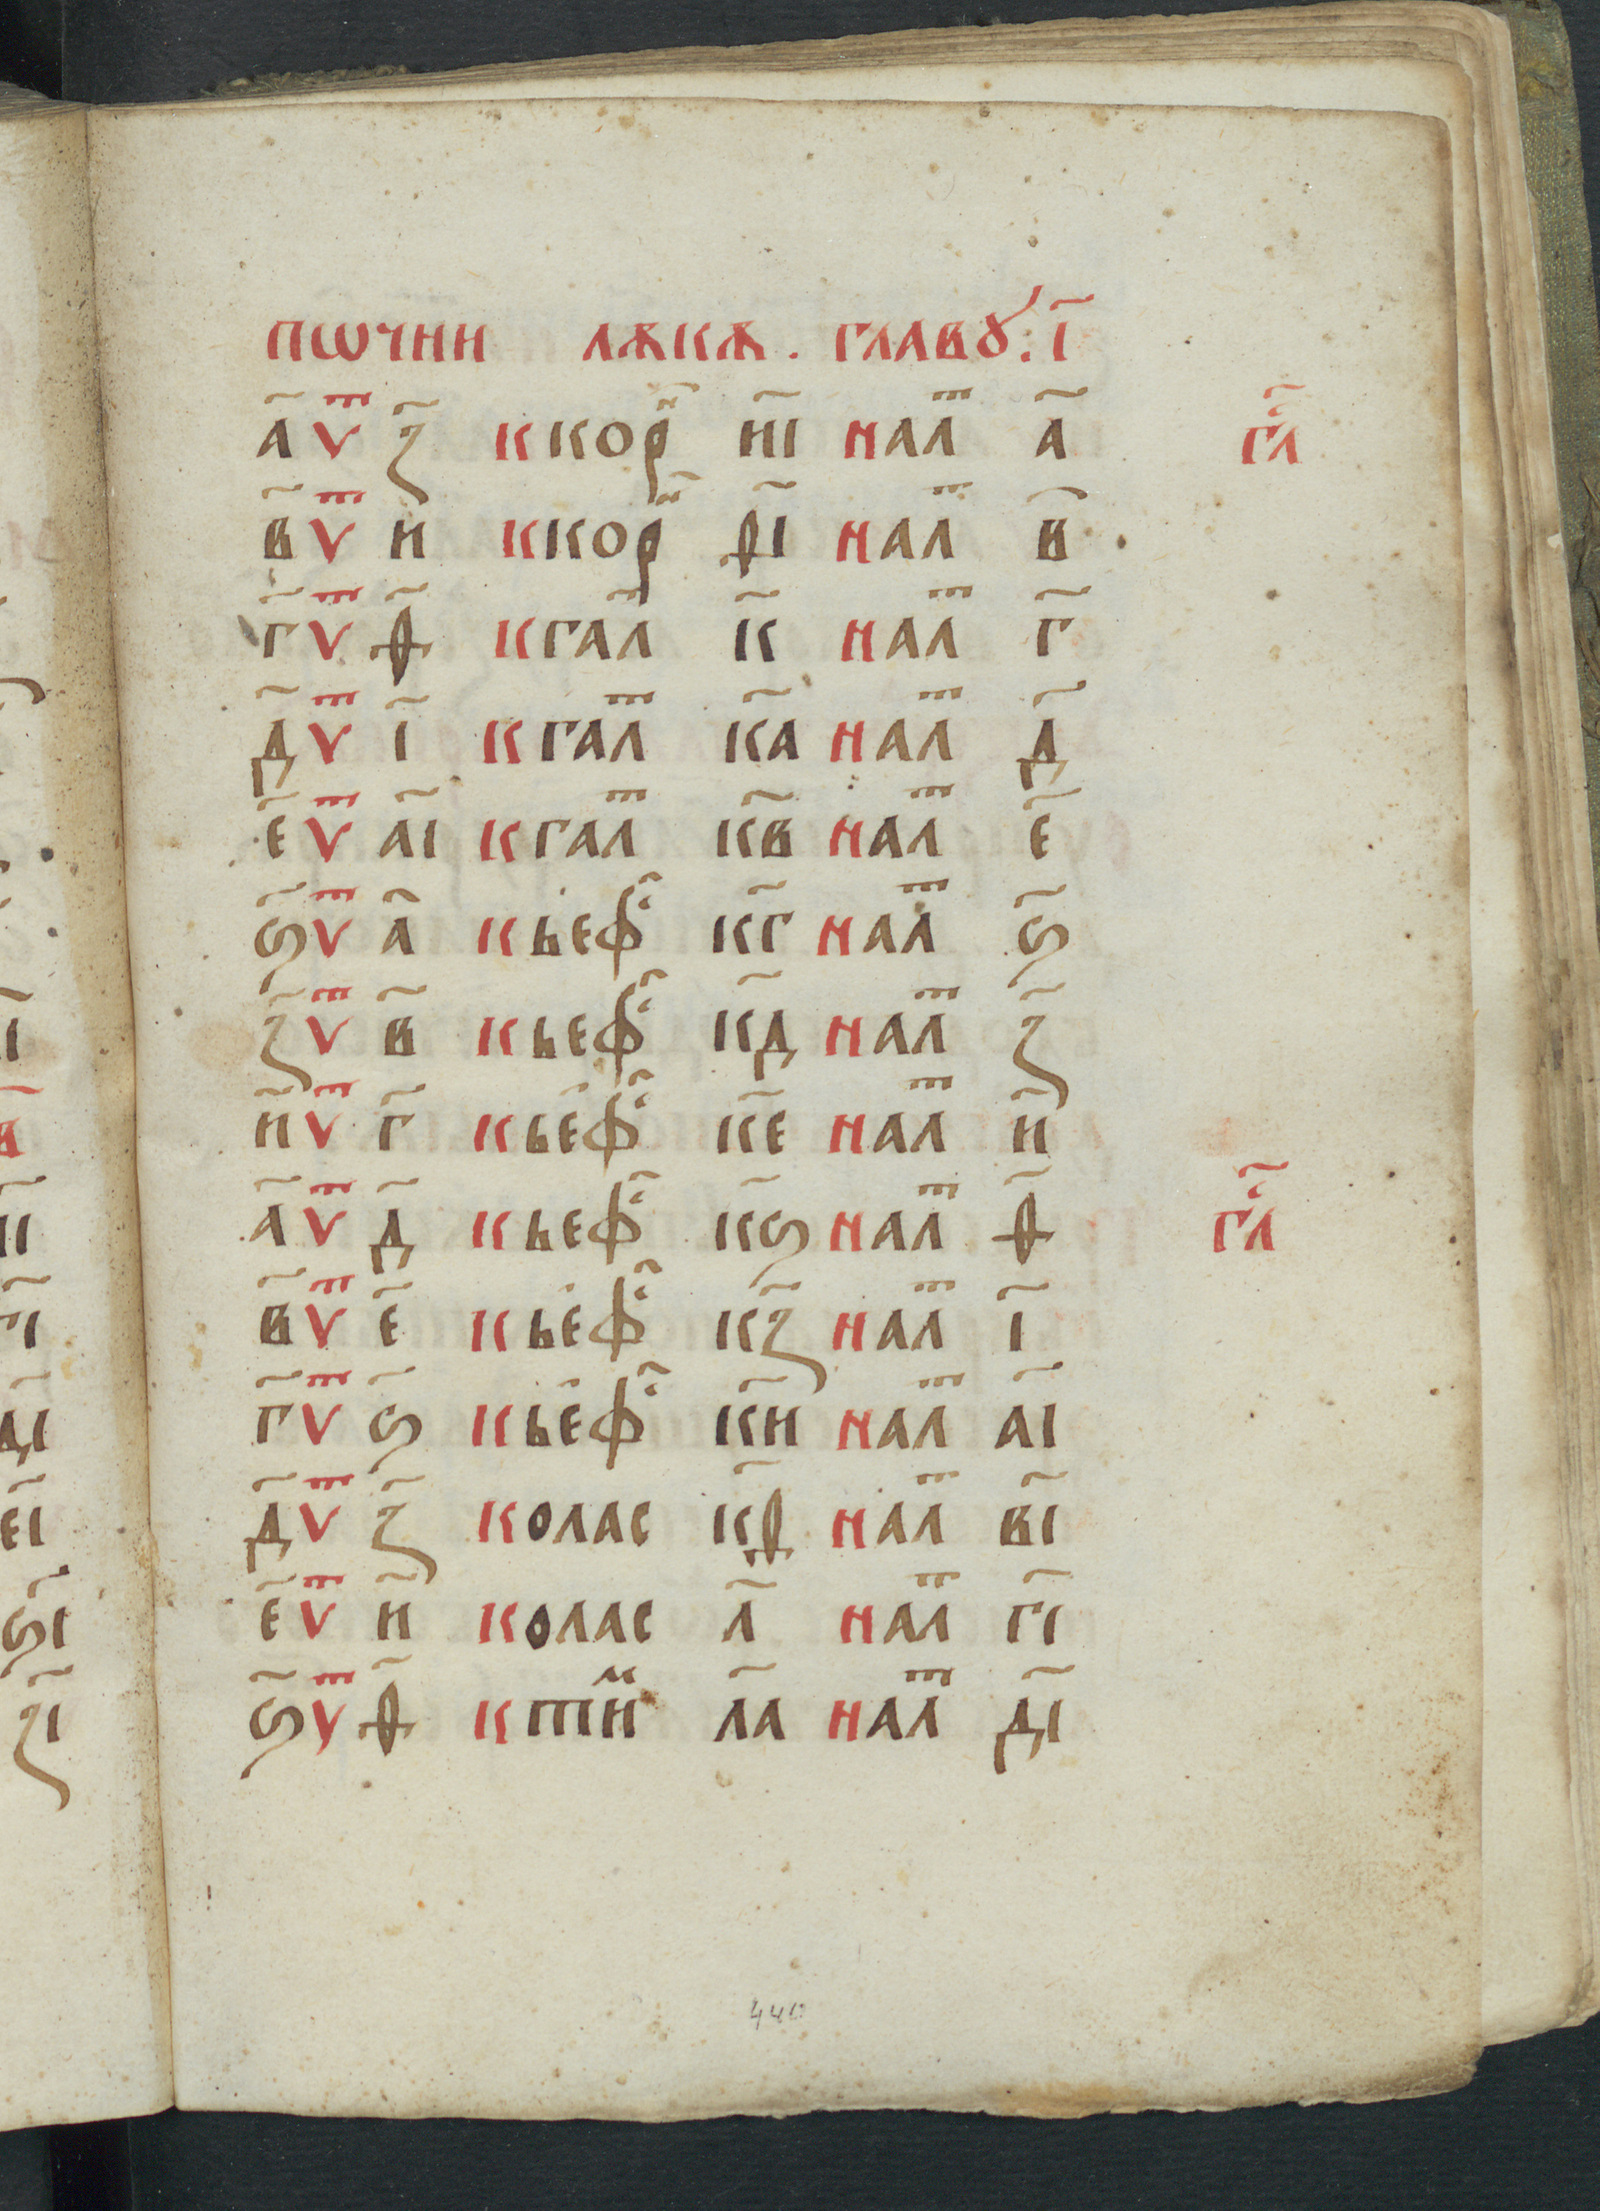 пѡчни лѫкѫ . главꙋ . і҃
а҃ ѵ з҃ к кор ні҃ н ал а҃ гл҃
в҃ ѵ и҃ к кор ѳі҃ н ал в҃
г҃ ѵ ѳ҃ к гал к҃ н ал г҃
д҃ ѵ і҃ к гал ка҃ н ал д҃
е҃ ѵ аі҃ к гал кв҃ н ал е҃
ѕ҃ ѵ а҃ к ьеф кг҃ н ал ѕ҃
з҃ ѵ в҃ к ьеф кд҃ н ал з҃
и҃ ѵ г҃ к ьеф ке҃ н ал и҃
а҃ ѵ д҃ к ьеф кѕ҃ н ал ѳ҃ гл҃
в҃ ѵ е҃ к ьеф кз҃ н ал і҃
г҃ ѵ ѕ҃ к ьеф ки҃ н ал аі҃
д҃ ѵ з҃ колас кѳ҃ н ал ві҃
е҃ ѵ и҃ колас л҃ н ал гі҃
ѕ҃ ѵ ѳ҃ к тим ла҃ н ал ді҃
440